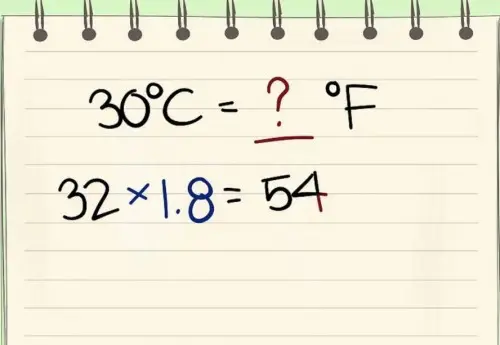 30°C = ? °F
32 × 1.8 = 54